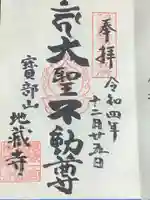 奉拝
令和四年
十二月廿五日
大聖不動尊
寶部山
地蔵寺